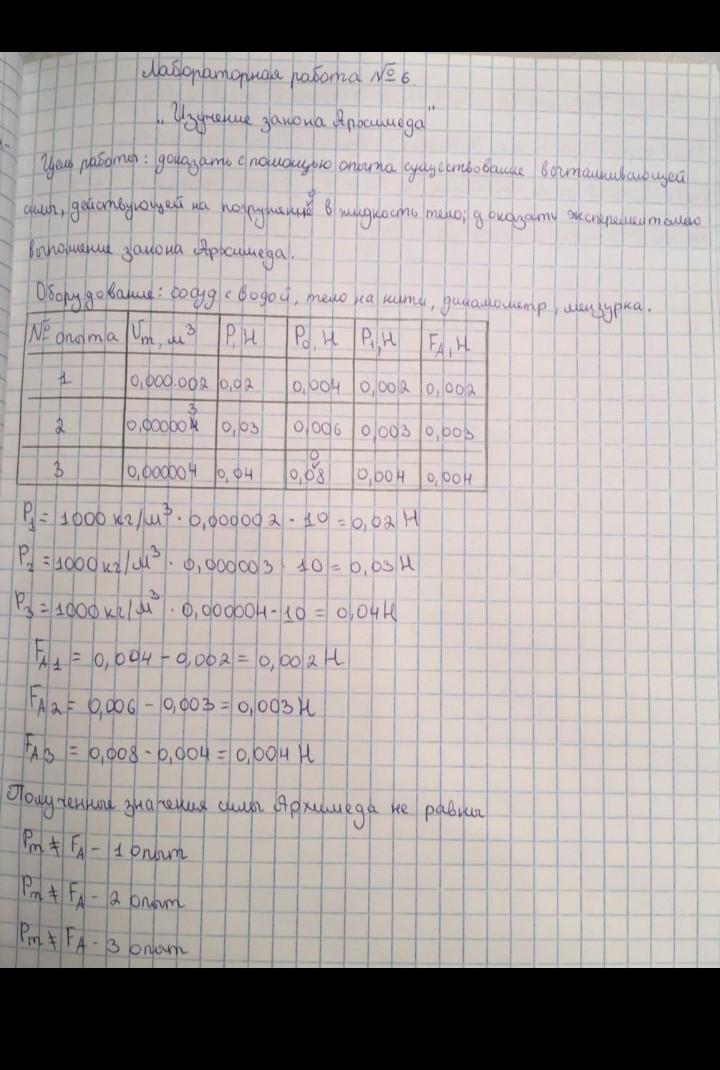 Лабораторная работа № 6.
„Изучение закона Архимеда"
Цель работы: доказать с помощью опыта существование выталкивающей
силы, действующей на погруженное в жидкость тело; доказать эксперементально
выполнение закона Архимеда.
Оборудование: сосуд с водой, тело на нити, динамометр, мензурка.
№ опыта Vт, м³ P, Н P₀, Н P₁, Н FА, Н
1 0,000.002 0,02 0,004 0,002 0,002
2 0,000003 0,03 0,006 0,003 0,003
3 0,000004 0,04 0,008 0,004 0,004
P₁ = 1000 кг/м³ · 0,000002 · 10 = 0,02 Н
P₂ = 1000 кг/м³ · 0,000003 · 10 = 0,03 Н
P₃ = 1000 кг/м³ · 0,000004 · 10 = 0,04 Н
FА1 = 0,004 - 0,002 = 0,002 Н
FА2 = 0,006 - 0,003 = 0,003 Н
FА3 = 0,008 - 0,004 = 0,004 Н
Полученные значения силы Архимеда не равны
Pт ≠ FА - 1 опыт
Pт ≠ FА - 2 опыт
Pт ≠ FА - 3 опыт